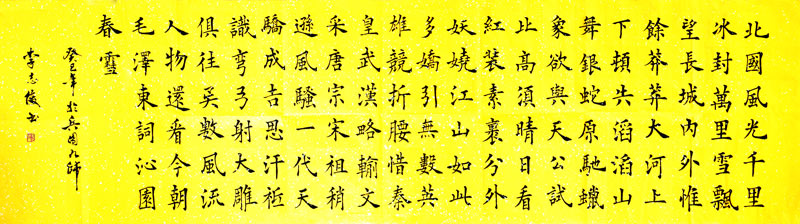 北國風光千里
冰封萬里雪飄
望長城內外惟
餘莽莽大河上
下頓失滔滔山
舞銀蛇原馳蠟
象欲與天公試
比高須晴日看
紅裝素裹分外
妖嬈江山如此
多嬌引無數英
雄競折腰惜秦
皇武漢略輸文
采唐宗宋祖稍
遜風騷一代天
驕成吉思汗衹
識彎弓射大雕
俱往矣數風流
人物還看今朝
毛澤東詞沁園
春雪
癸巳年於兵团九師
李志俊书